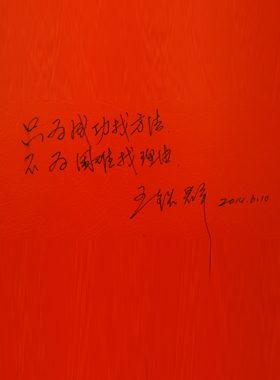 只为成功找方法.
不为困难找理由.
王
2014.6.10